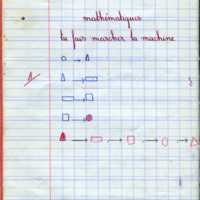 mathématiques
tu fais marcher la machine